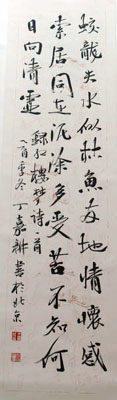 蛟龍失水似枯魚 並地情懷感
索居同在泥塗多受苦不知何
日向清虛
錄紅樓夢詩一首
八百季冬 丁嘉耕書於北京